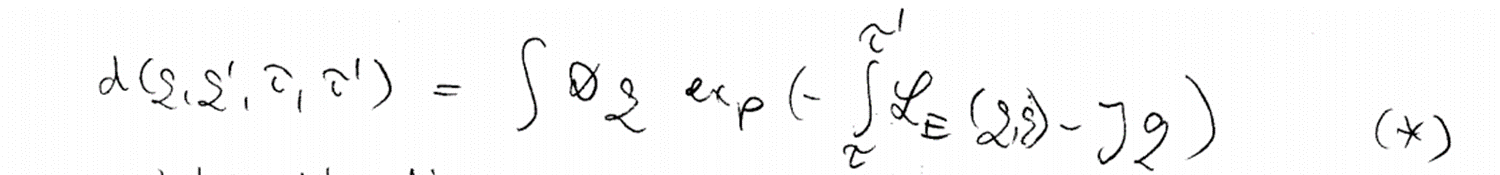 d(q, q', τ, τ') = ∫ Dq exp(- ∫_τ^τ' ℒ_E (q, q̇) - Jq) (*)